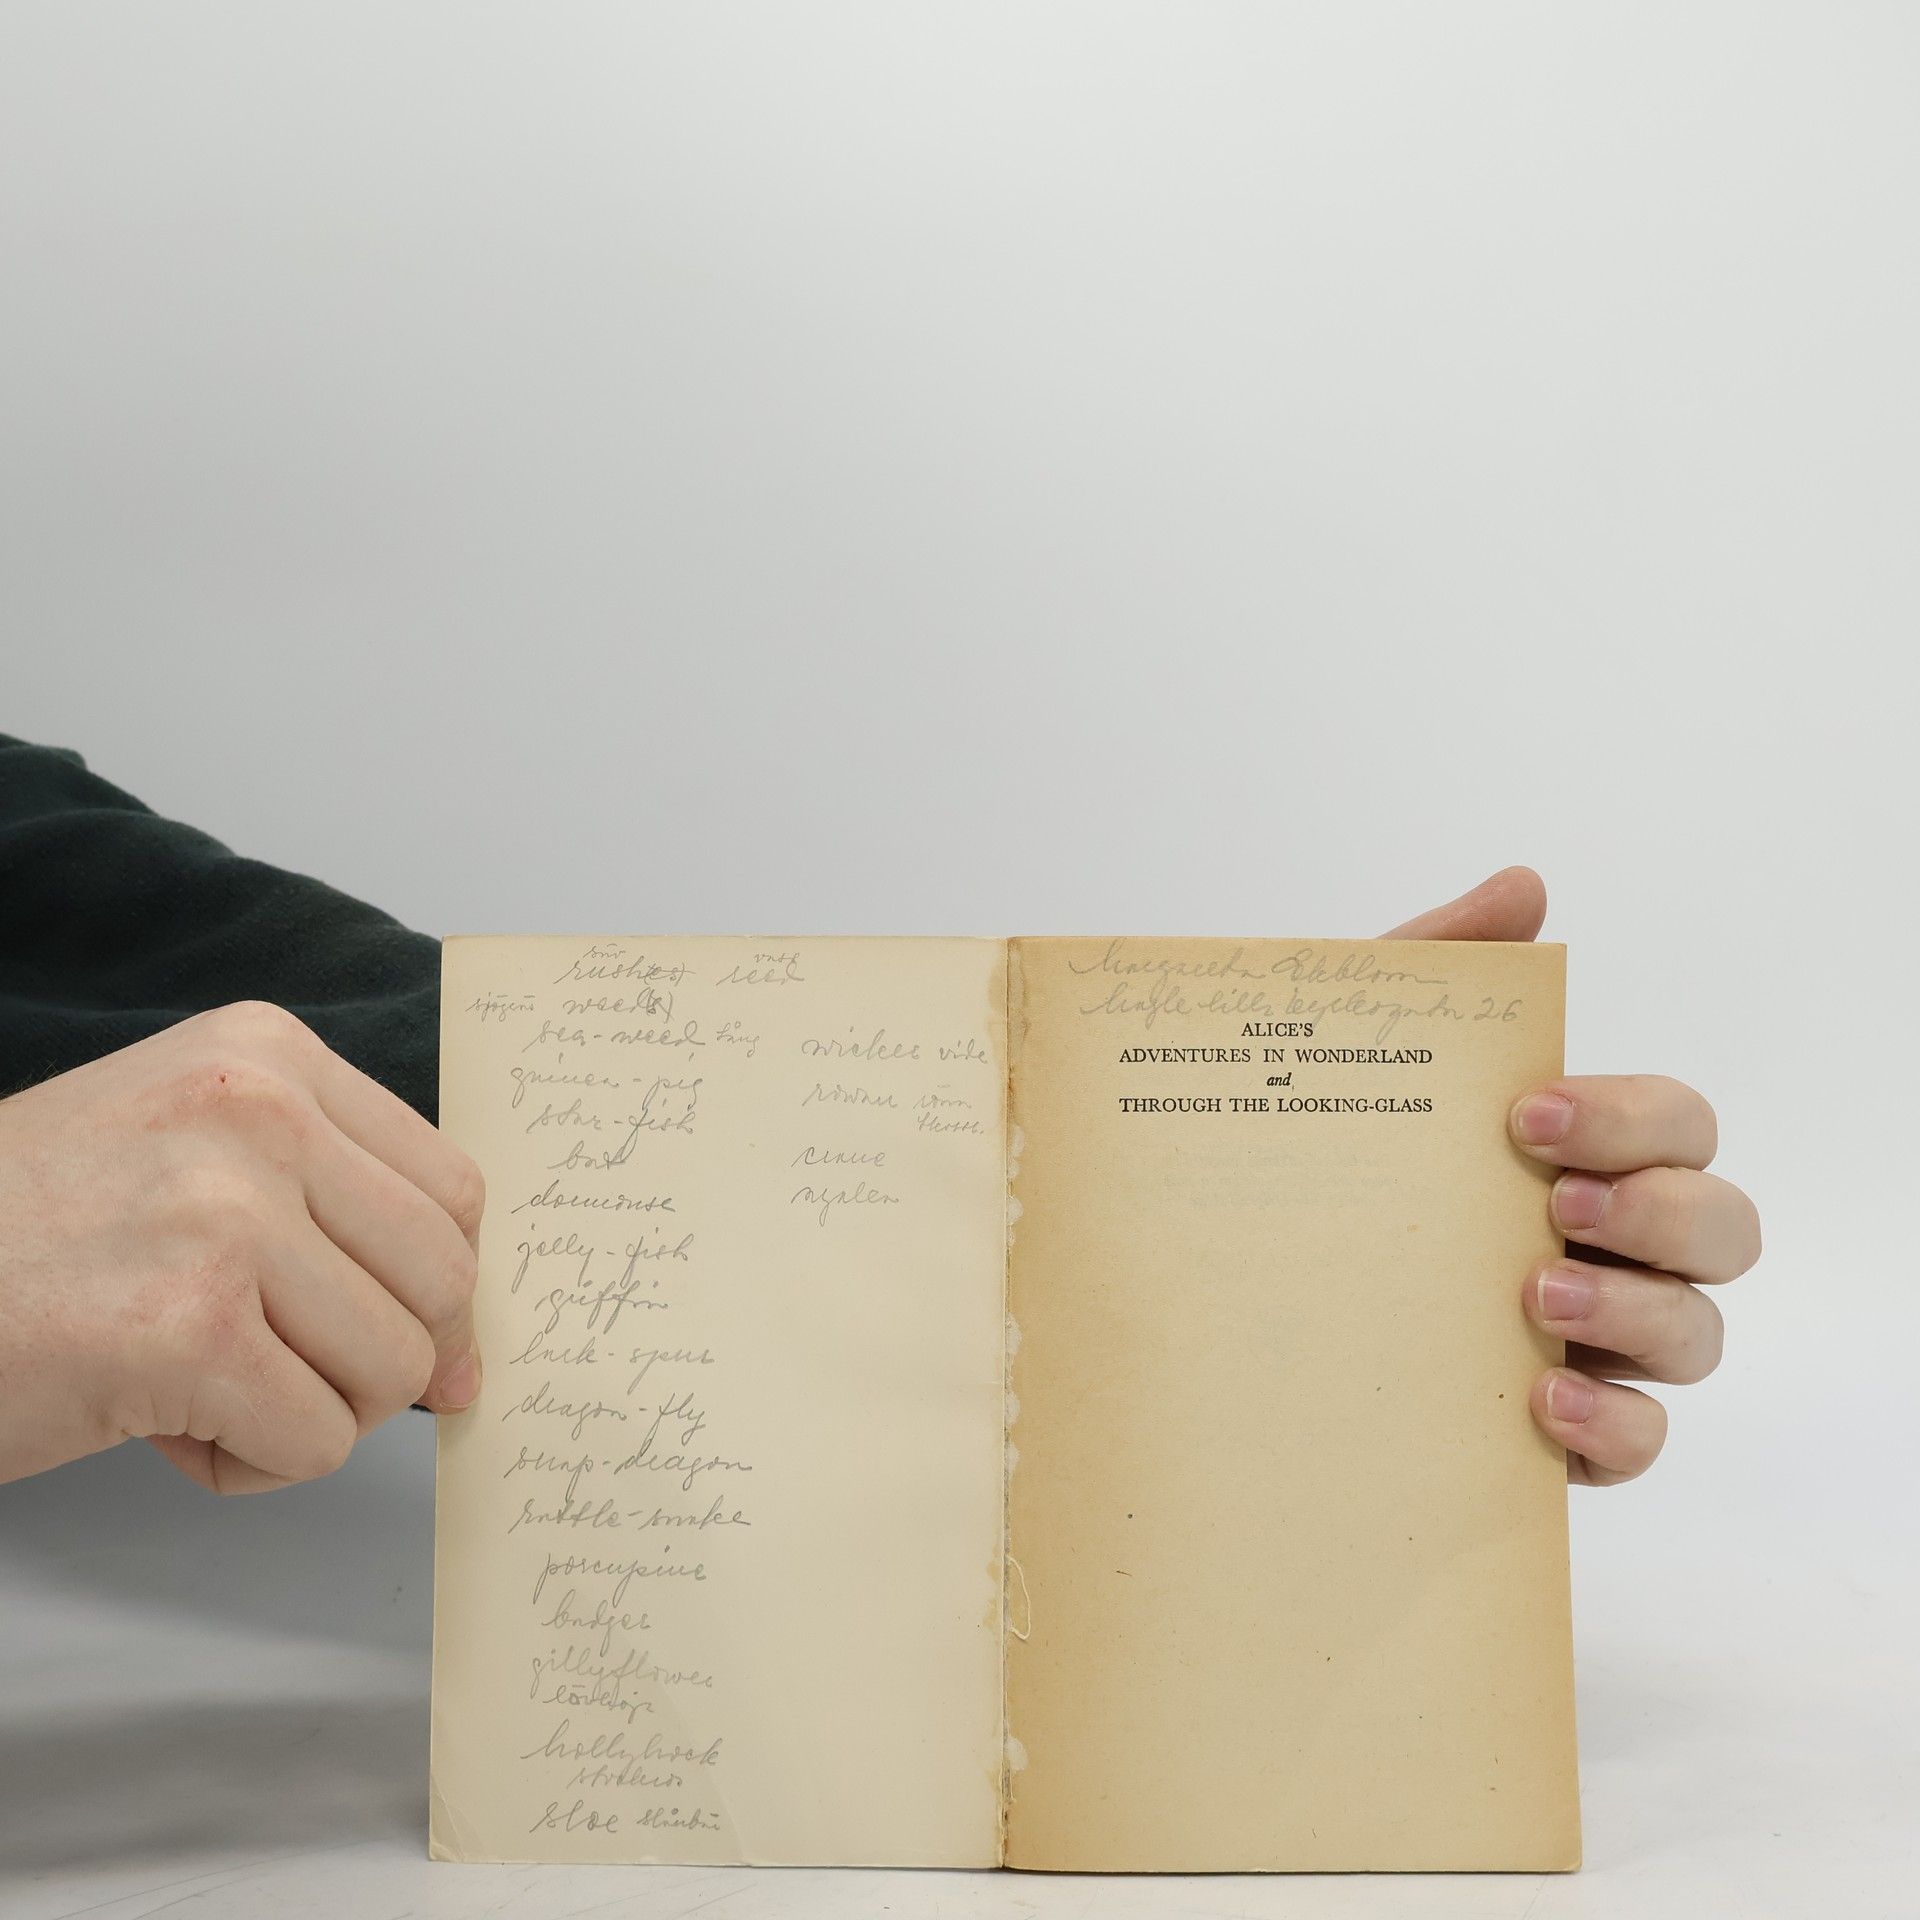 säv vass
rush(es) reed
sjögräs weed(s)
sea-weed tång
guinea-pig
star-fish
bat
dormouse
jelly-fish
griffin
lark-spur
dragon-fly
snap-dragon
rattle-snake
porcupine
badger
gillyflower
lövkoja
hollyhock
stockros
sloe slånbär
wicker vide
rowan rönn
azalea
Margareta Ekblom
26
ALICE'S
ADVENTURES IN WONDERLAND
and
THROUGH THE LOOKING-GLASS